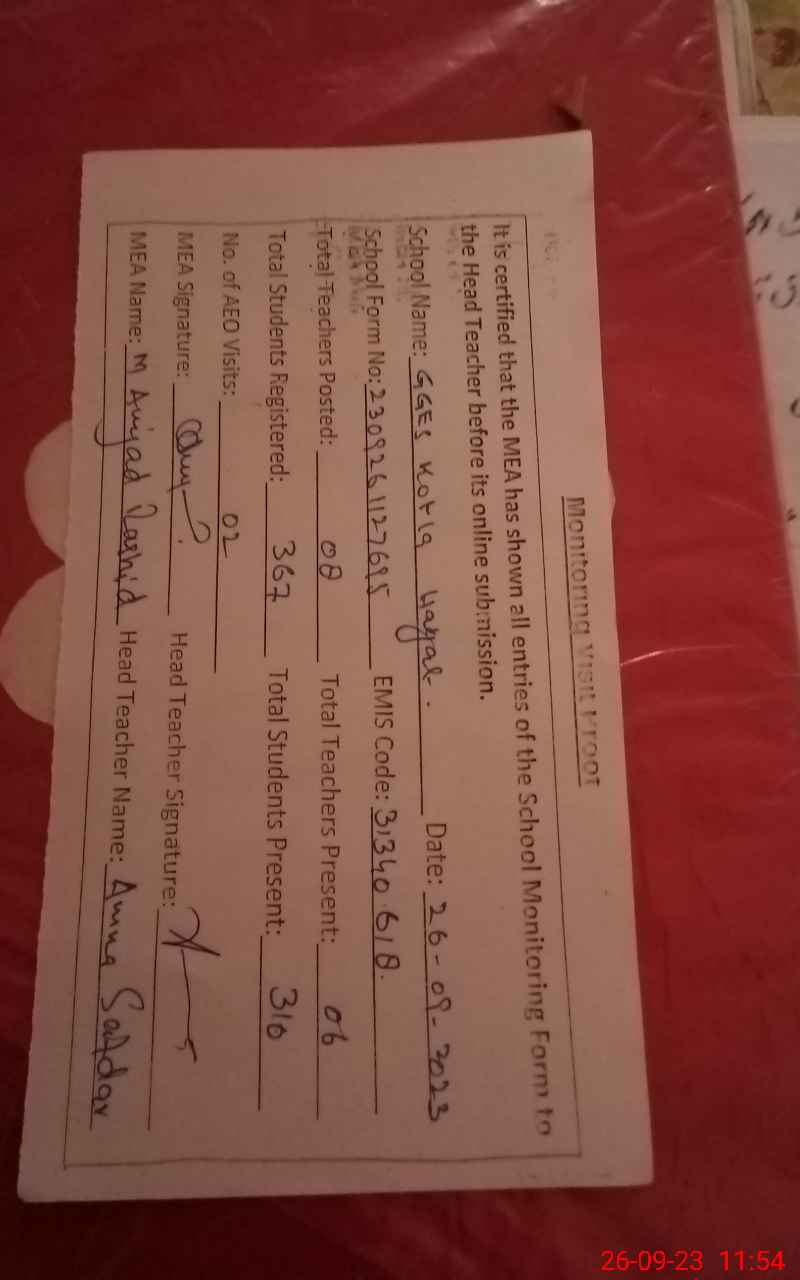 Monitoring Visit Proof
It is certified that the MEA has shown all entries of the School Monitoring Form to
the Head Teacher before its online submission.
School Name: GGES Kotla Date: 26-09-2023
School Form No: 2309261127695 EMIS Code: 31340618.
Total Teachers Posted: 08 Total Teachers Present: 06
Total Students Registered: 367 Total Students Present: 310
No. of AEO Visits: 02
MEA Signature: Head Teacher Signature:
MEA Name: M Amjad Rashid Head Teacher Name: Amna Safdar
26-09-23 11:54